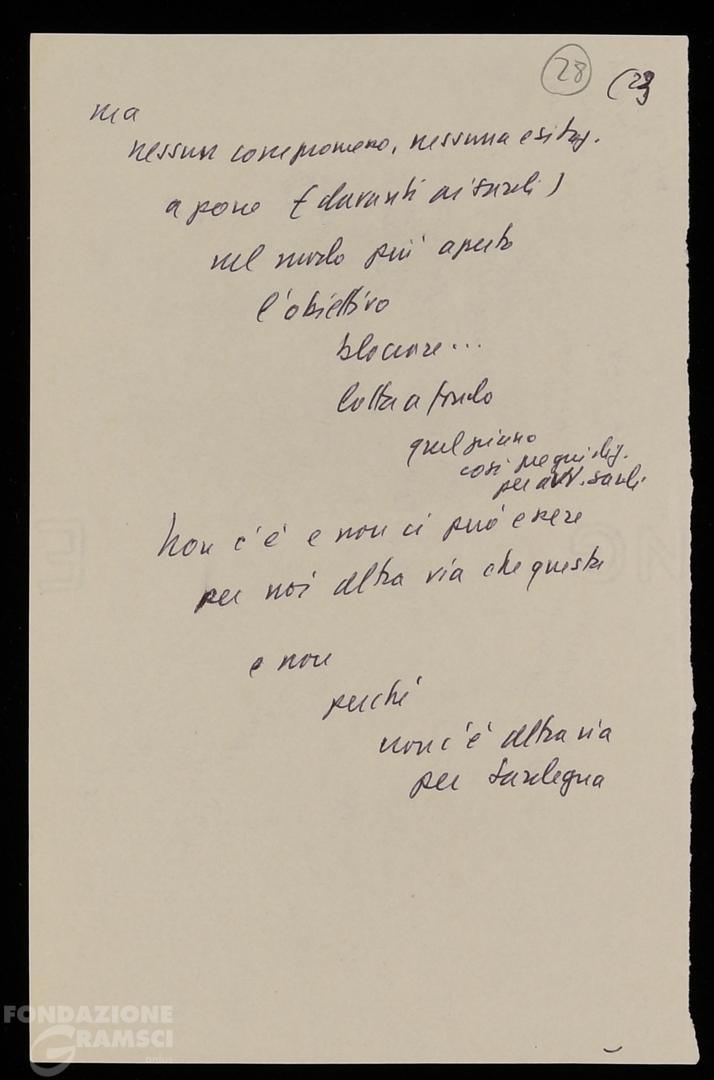 28 (23)
ma
nessun compromesso, nessuna esitaz.
a porre (davanti ai sardi)
nel modo più aperto
l'obiettivo
bloccare...
lotta a fondo
quel piano
così pregiudiz.
per avv. sardi
Non c'è e non ci può essere
per noi altra via che questa
e non
perché
non c'è altra via
per Sardegna
FONDAZIONE
GRAMSCI
onlus